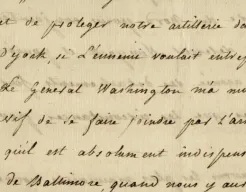 de proteger notre artillerie
d'york, si L'ennemi voulait
Le General Washington m'a
de se faire joindre par L'ar
qu'il est absolument indispens
de Baltimore, quand nous y aur